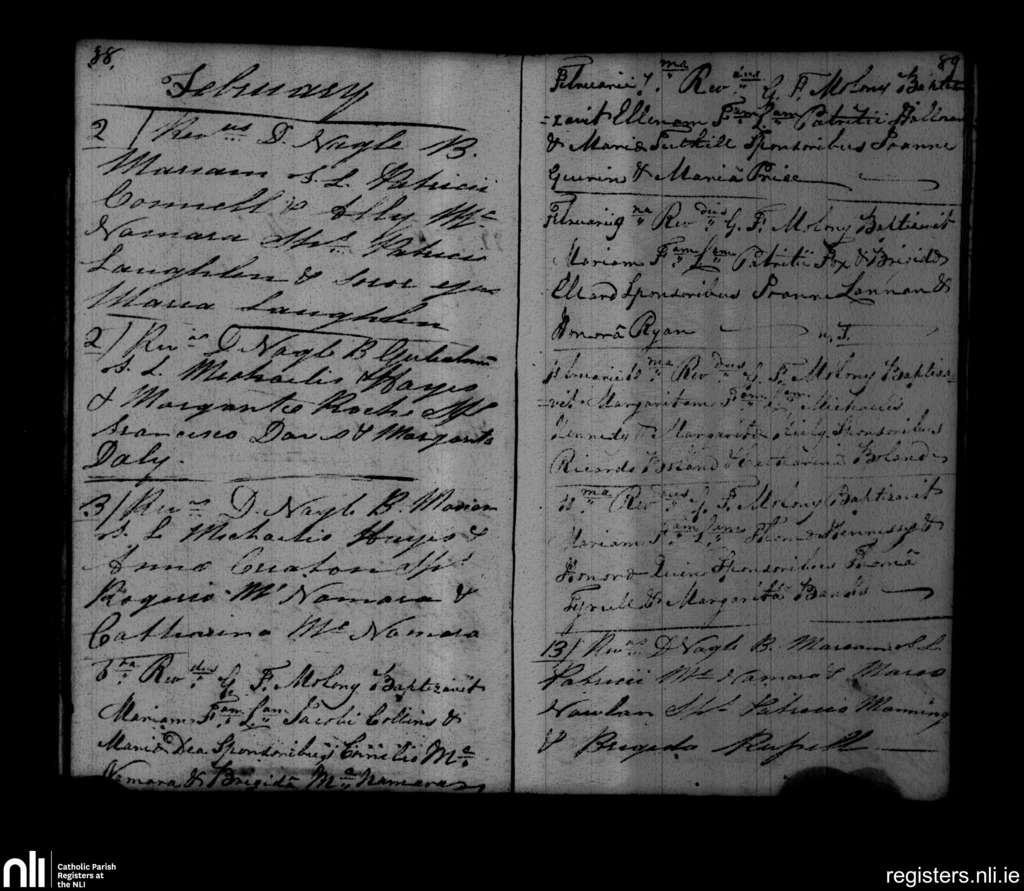 88.
February
2/ Revus D. Nagle B.
Mariam f. L. Patricii
Connell & Ally Mc
Namara Sps Patricio
Laughlen & soror ejus
Maria Laughlen
2/ Revus D Nagle B Gulielmum
f. L Michaelis Hayes
& Margarita Roche Sps
Francisco Davis & Margarita
Daly.
3/ Revus D. Nagle B. Mariam
f. L Michaelis Hayes &
Anna Sps
Rogerio Mc Namara &
Catherina Mc Namara
Revdus G. F. Molony Baptizavit
Mariam Fam Lam Jacobi Collins &
Maria Dea Sponsoribus Cornelio Mc
Namara & Brigidâ Mc Namara
89
Februarii 7ma Revdus G. F. Molony Baptiz
=zavit Ellenam Fam Lam Patritii Halloran
& Maria Tuthill Sponsoribus Joanne
Guerin & Mariâ Price
Februarii 9na Revdus G. F. Molony Baptizavit
Mariam Fam Lam Patritii Fox & Brigida
Ellard Sponsoribus Joanne Lannan &
Honorâ Ryan
Februarii ma Revdus G. F. Molony Baptiza=
=vit Margaritam Fam Lam Michaelis
Kennedy & Margarita Sponsoribus
Ricardo Boland & Catharinâ Boland
ma Revdus G. F. Molony Baptizavit
Mariam Fam Lam Hennessy &
Honora Quinn Sponsoribus Thomâ
Tyrrell & Margaritâ
13/ Revus D Nagle B. Mariam f L
Patricii Mc Namara & Maria
Nowlan Sps Patricio Manning
& Brigida Russell
nli
Catholic Parish
Registers at
the NLI
registers.nli.ie